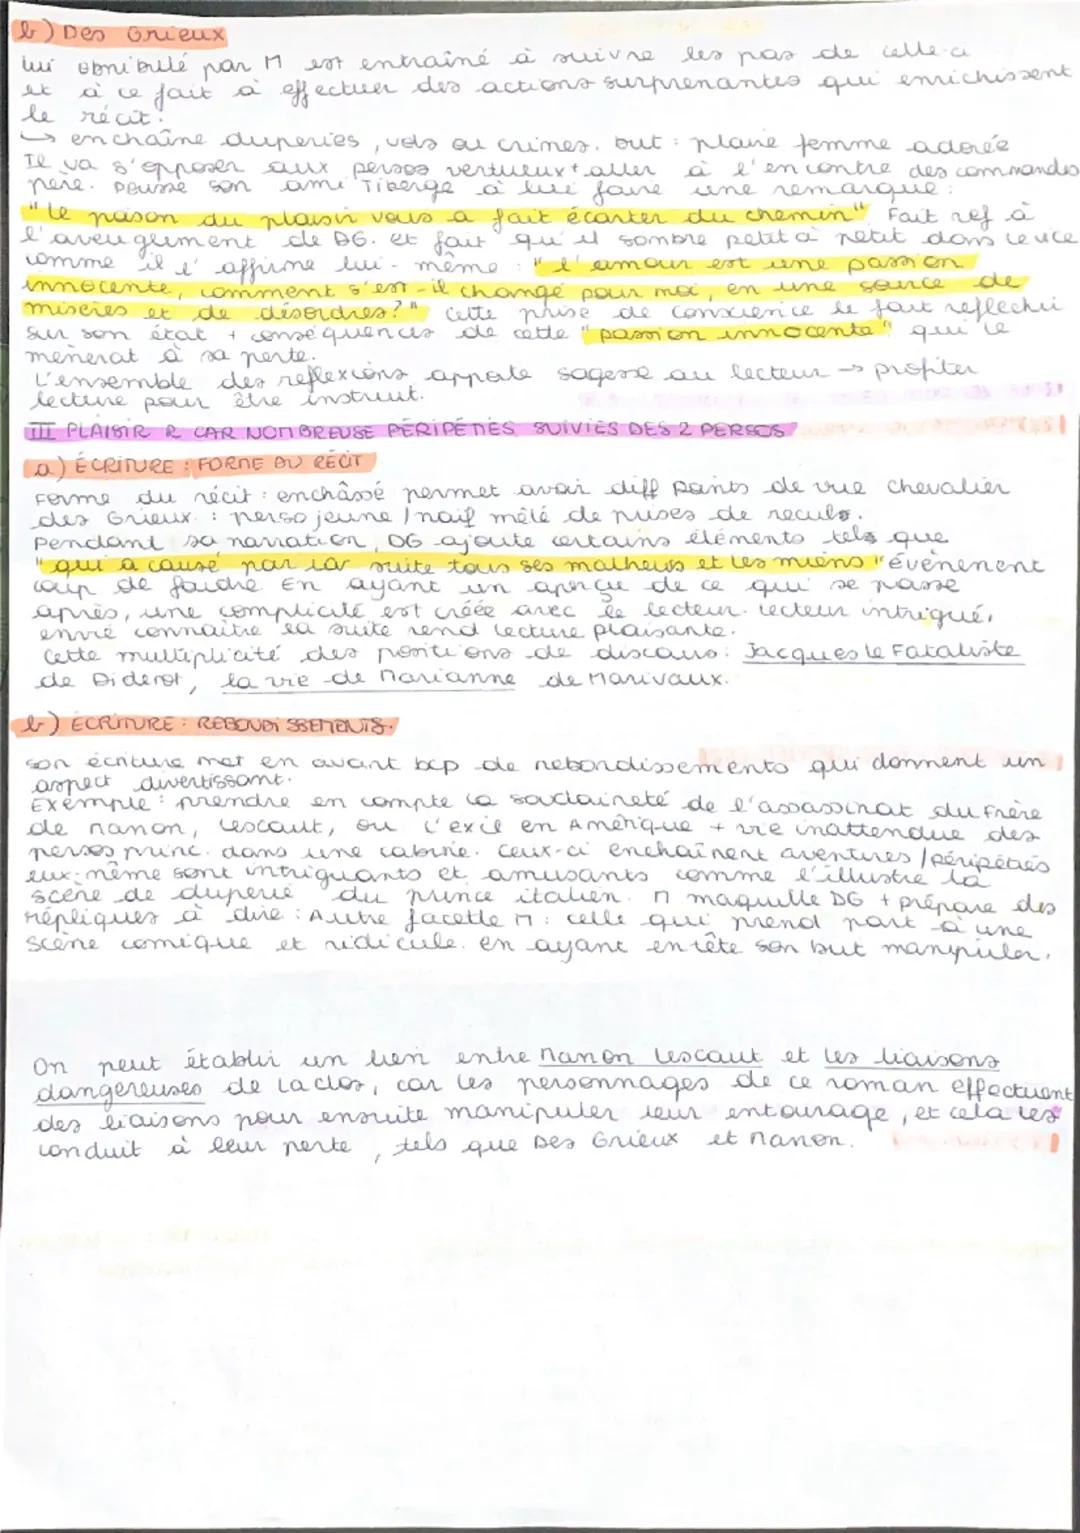 b) Des Grieux
lui obnibulé par M est entraîné à suivre les pas de celle-ci
et à ce fait à effectuer des actions surprenantes qui enrichissent
le récit.
→ enchaîne duperies, vols ou crimes. but : plaire femme adorée
Il va s'opposer aux persos vertueux + aller à l'encontre des commandes
père. Pousse son ami Tiberge à lui faire une remarque :
"le poison du plaisir vous a fait écarter du chemin" Fait ref à
l'aveuglement de DG. et fait qu'il sombre petit à petit dans le vice
comme il l'affirme lui-même : "l'amour est une passion
innocente, comment s'est-il changé pour moi, en une source de
misères et de désordres ?" Cette prise de conscience le fait reflechir
sur son état + conséquences de cette "passion innocente" qui le
menerat à sa perte.
L'ensemble des reflexions apporte sagesse au lecteur → profiter
lecture pour être instruit.
III PLAISIR R CAR NOMBREUSE PÉRIPÉTIES SUIVIES DES 2 PERSOS
a) ÉCRITURE : FORME DU RÉCIT
Forme du récit : enchâssé permet avoir diff points de vue chevalier
des Grieux : perso jeune / naif mêlé de prises de recul.
Pendant sa narration, DG ajoute certains éléments tels que
"qui a causé par la suite tous ses malheurs et les miens" évènement
coup de foudre En ayant un aperçu de ce qui se passe
après, une complicité est créée avec le lecteur. Lecteur intrigué,
envie connaître la suite rend lecture plaisante.
Cette multiplicité des positions de discours : Jacques le Fataliste
de Diderot, la vie de Marianne de Marivaux.
b) ÉCRITURE : REBONDISSEMENTS.
son écriture met en avant bcp de rebondissements qui donnent un
aspect divertissant.
Exemple : prendre en compte la soudaineté de l'assassinat du Frère
de Manon, Lescaut, ou l'exil en Amérique + vie inattendue des
persos princ. dans une cabine. Ceux-ci enchaînent aventures / péripéties
eux-même sont intriguants et amusants comme l'illustre la
scène de duperie du prince italien. M maquille DG + prépare des
répliques à dire : Autre facette M : celle qui prend part à une
scène comique et ridicule. en ayant en tête son but manipuler.
On peut établir un lien entre Manon Lescaut et les liaisons
dangereuses de Laclos, car les personnages de ce roman effectuent
des liaisons pour ensuite manipuler leur entourage, et cela les
conduit à leur perte, tels que Des Grieux et Manon.